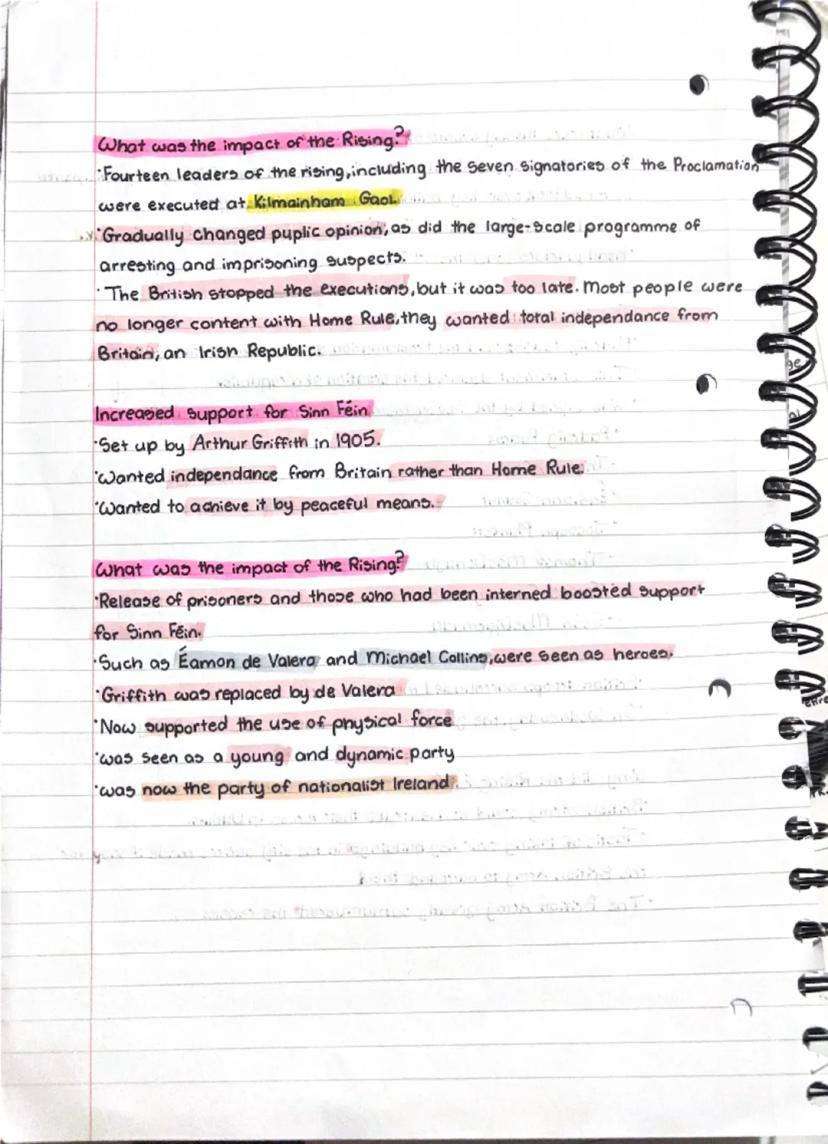 What was the impact of the Rising?
·Fourteen leaders of the rising, including the seven signatories of the Proclamation
were executed at Kilmainham Gaol.
·Gradually changed puplic opinion, as did the large-scale programme of
arresting and imprisoning suspects.
· The British stopped the executions, but it was too late. Most people were
no longer content with Home Rule, they wanted total independance from
Britain, an Irish Republic.
Increased support for Sinn Féin
·Set up by Arthur Griffith in 1905.
·Wanted independance from Britain rather than Home Rule.
·Wanted to achieve it by peaceful means.
What was the impact of the Rising?
·Release of prisoners and those who had been interned boosted support
for Sinn Féin.
·Such as Éamon de Valera and Michael Collins, were seen as heroes.
·Griffith was replaced by de Valera
·Now supported the use of physical force
·was seen as a young and dynamic party
·was now the party of nationalist Ireland.